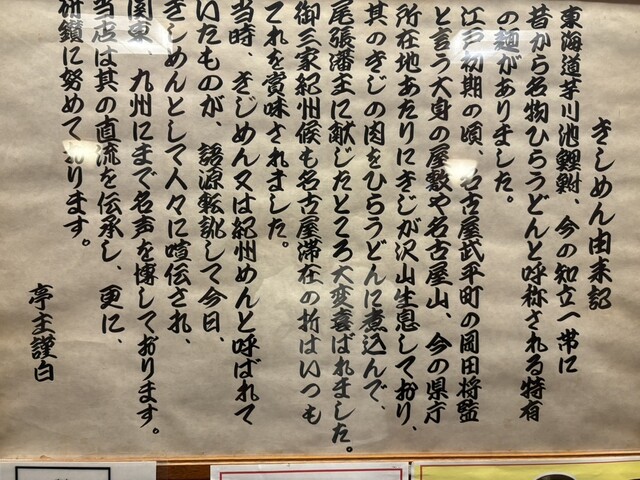 きしめん由来記
東海道芋川池鯉鮒、今の知立一帯に
昔から名物ひらうどんと呼称される特有
の麺がありました。
江戸初期の頃、名古屋武平町の岡田将監
と言う大身の屋敷や名古屋山、今の県庁
所在地あたりにきじが沢山生息しており、
其のきじの肉をひらうどんに煮込んで、
尾張藩主に献じたところ大変喜ばれました。
御三家紀州候も名古屋滞在の折はいつも
これを賞味されました。
当時、きじめん又は紀州めんと呼ばれて
いたものが、語源転訛して今日、
きしめんとして人々に喧伝され、
関東、九州にまで名声を博しております。
当店は其の直流を伝承し、更に、
研鑽に努めております。
亭主謹白